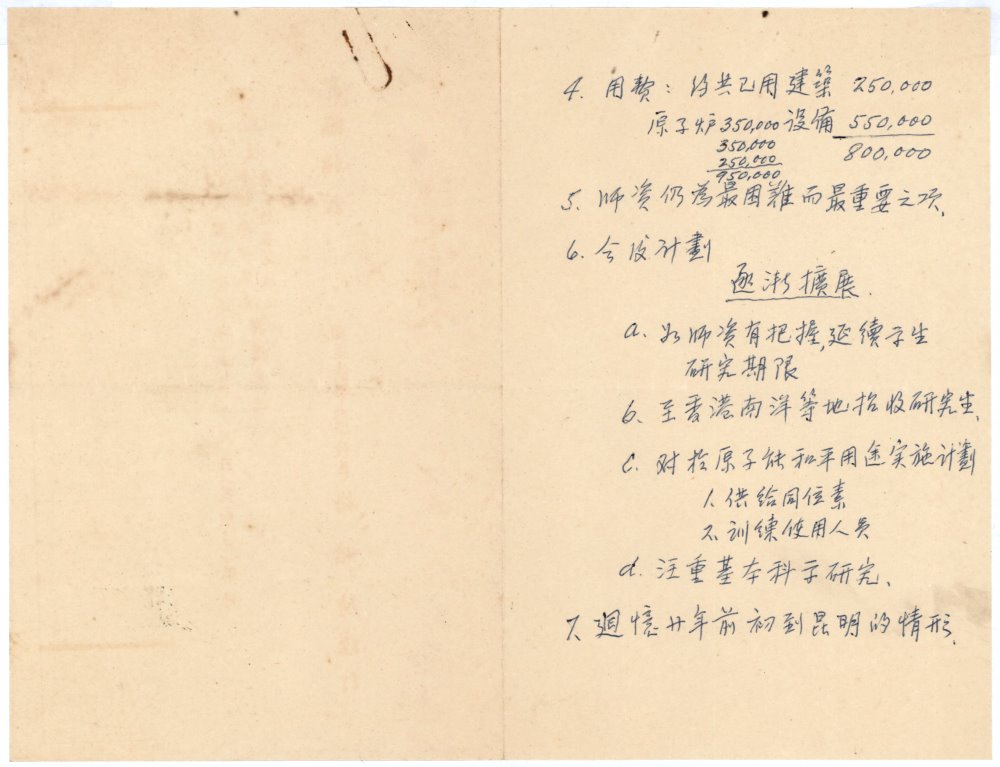 4. 用费: 约共已用建築 250,000
原子炉 350,000 设備 550,000
350,000
250,000
950,000
800,000
5. 师资仍為最困難而最重要之项.
6. 今後计劃
逐渐擴展.
a. 如师资有把握,延续学生
研究期限
b. 至香港南洋等地招收研究生.
c. 对於原子能和平用途实施计劃
1. 供给同位素
2. 训練使用人员
d. 注重基本科学研究.
7. 迴憶廿年前初到昆明的情形.